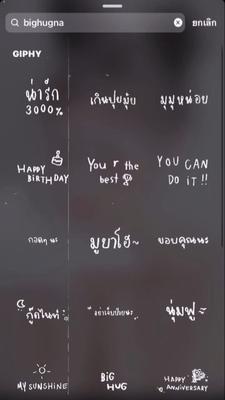 bighugna
ยกเลิก
GIPHY
น่ารัก
3000%
เกินปุยมุ้ย
มุมุหน่อย
HAPPY
BIRTHDAY
You r the
best
YOU CAN
DO IT!!
กอดๆ นะ
มูบาโฮ~
ขอบคุณนะ
กู๊ดไนท์
อย่าเจ็บป่วยนะ
นุ่มฟู
MY SUNSHINE
BiG
HUG
HAPPY
ANNIVERSARY